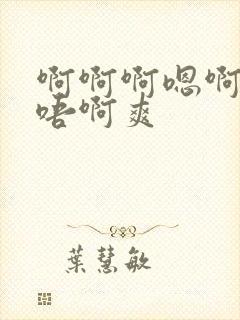 啊啊啊嗯啊
唔啊爽
葉慧敏